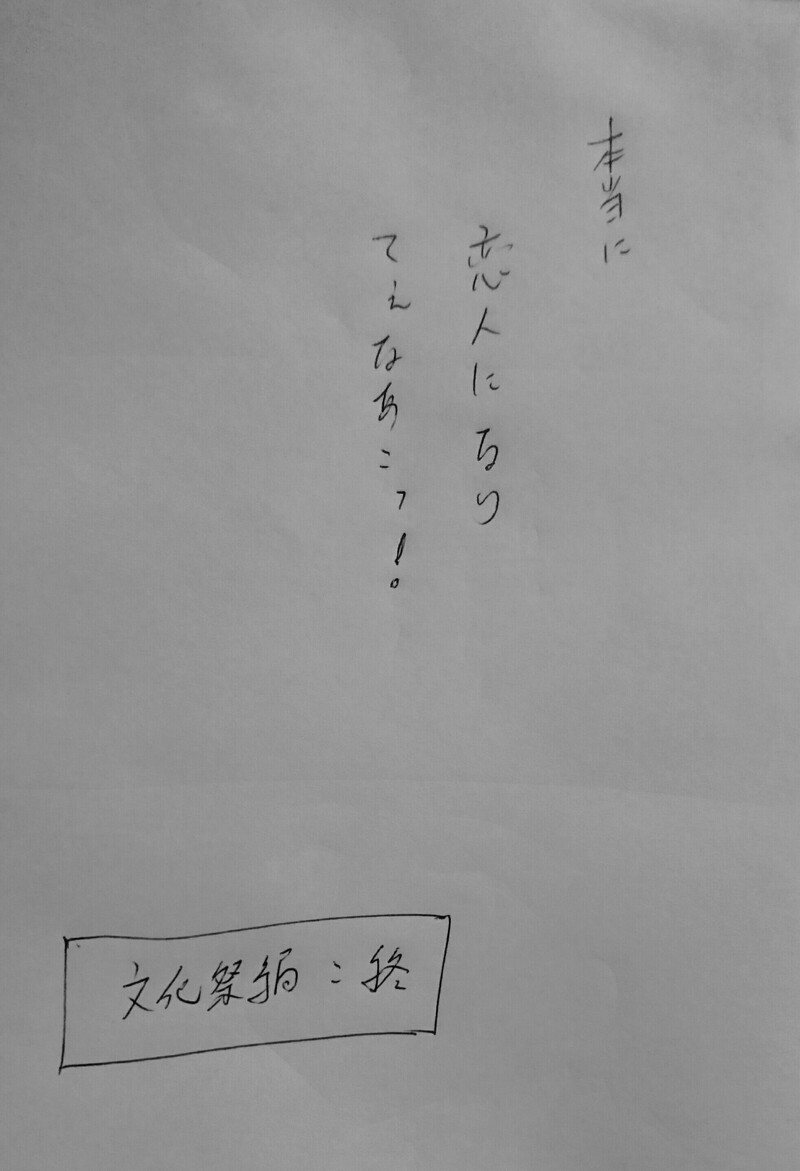 本当に
恋人になり
てえなあこっ!
文化祭編:終